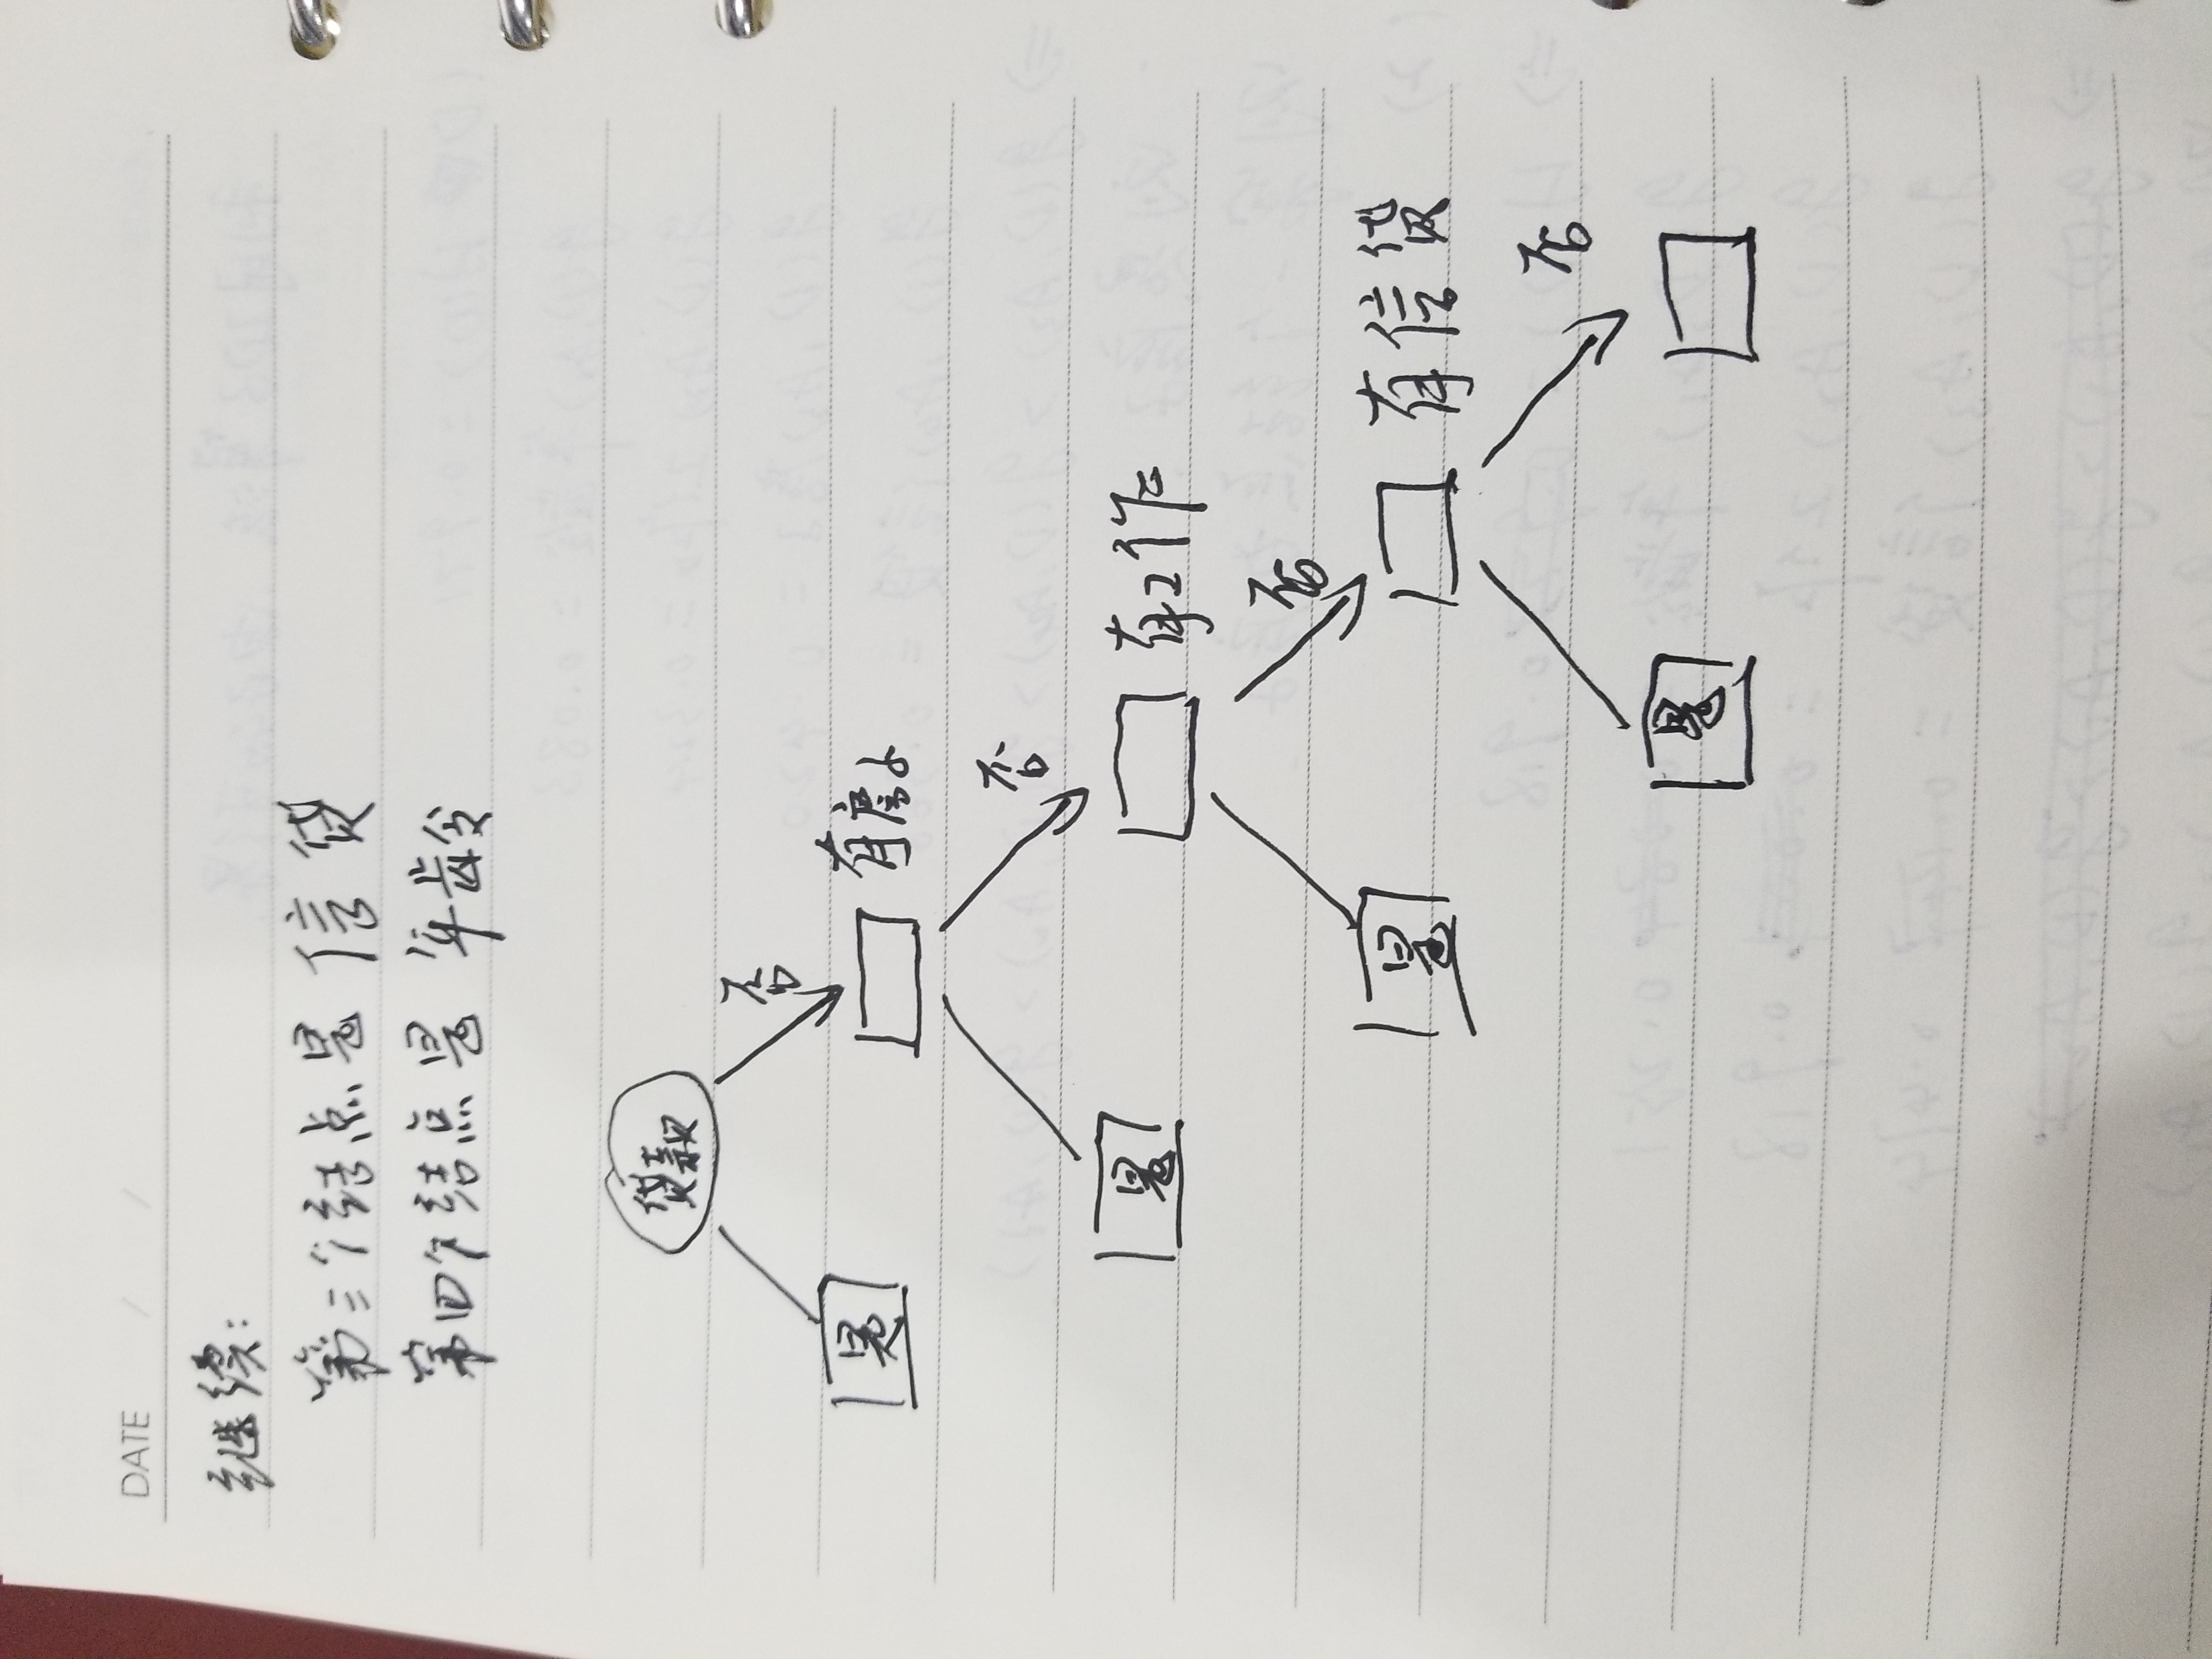 DATE / /
继续:
第三个结点是 信贷
第四个结点是 年龄
贷款
否
是
有房子
否
是
有工作
否
是
有信贷
否
是